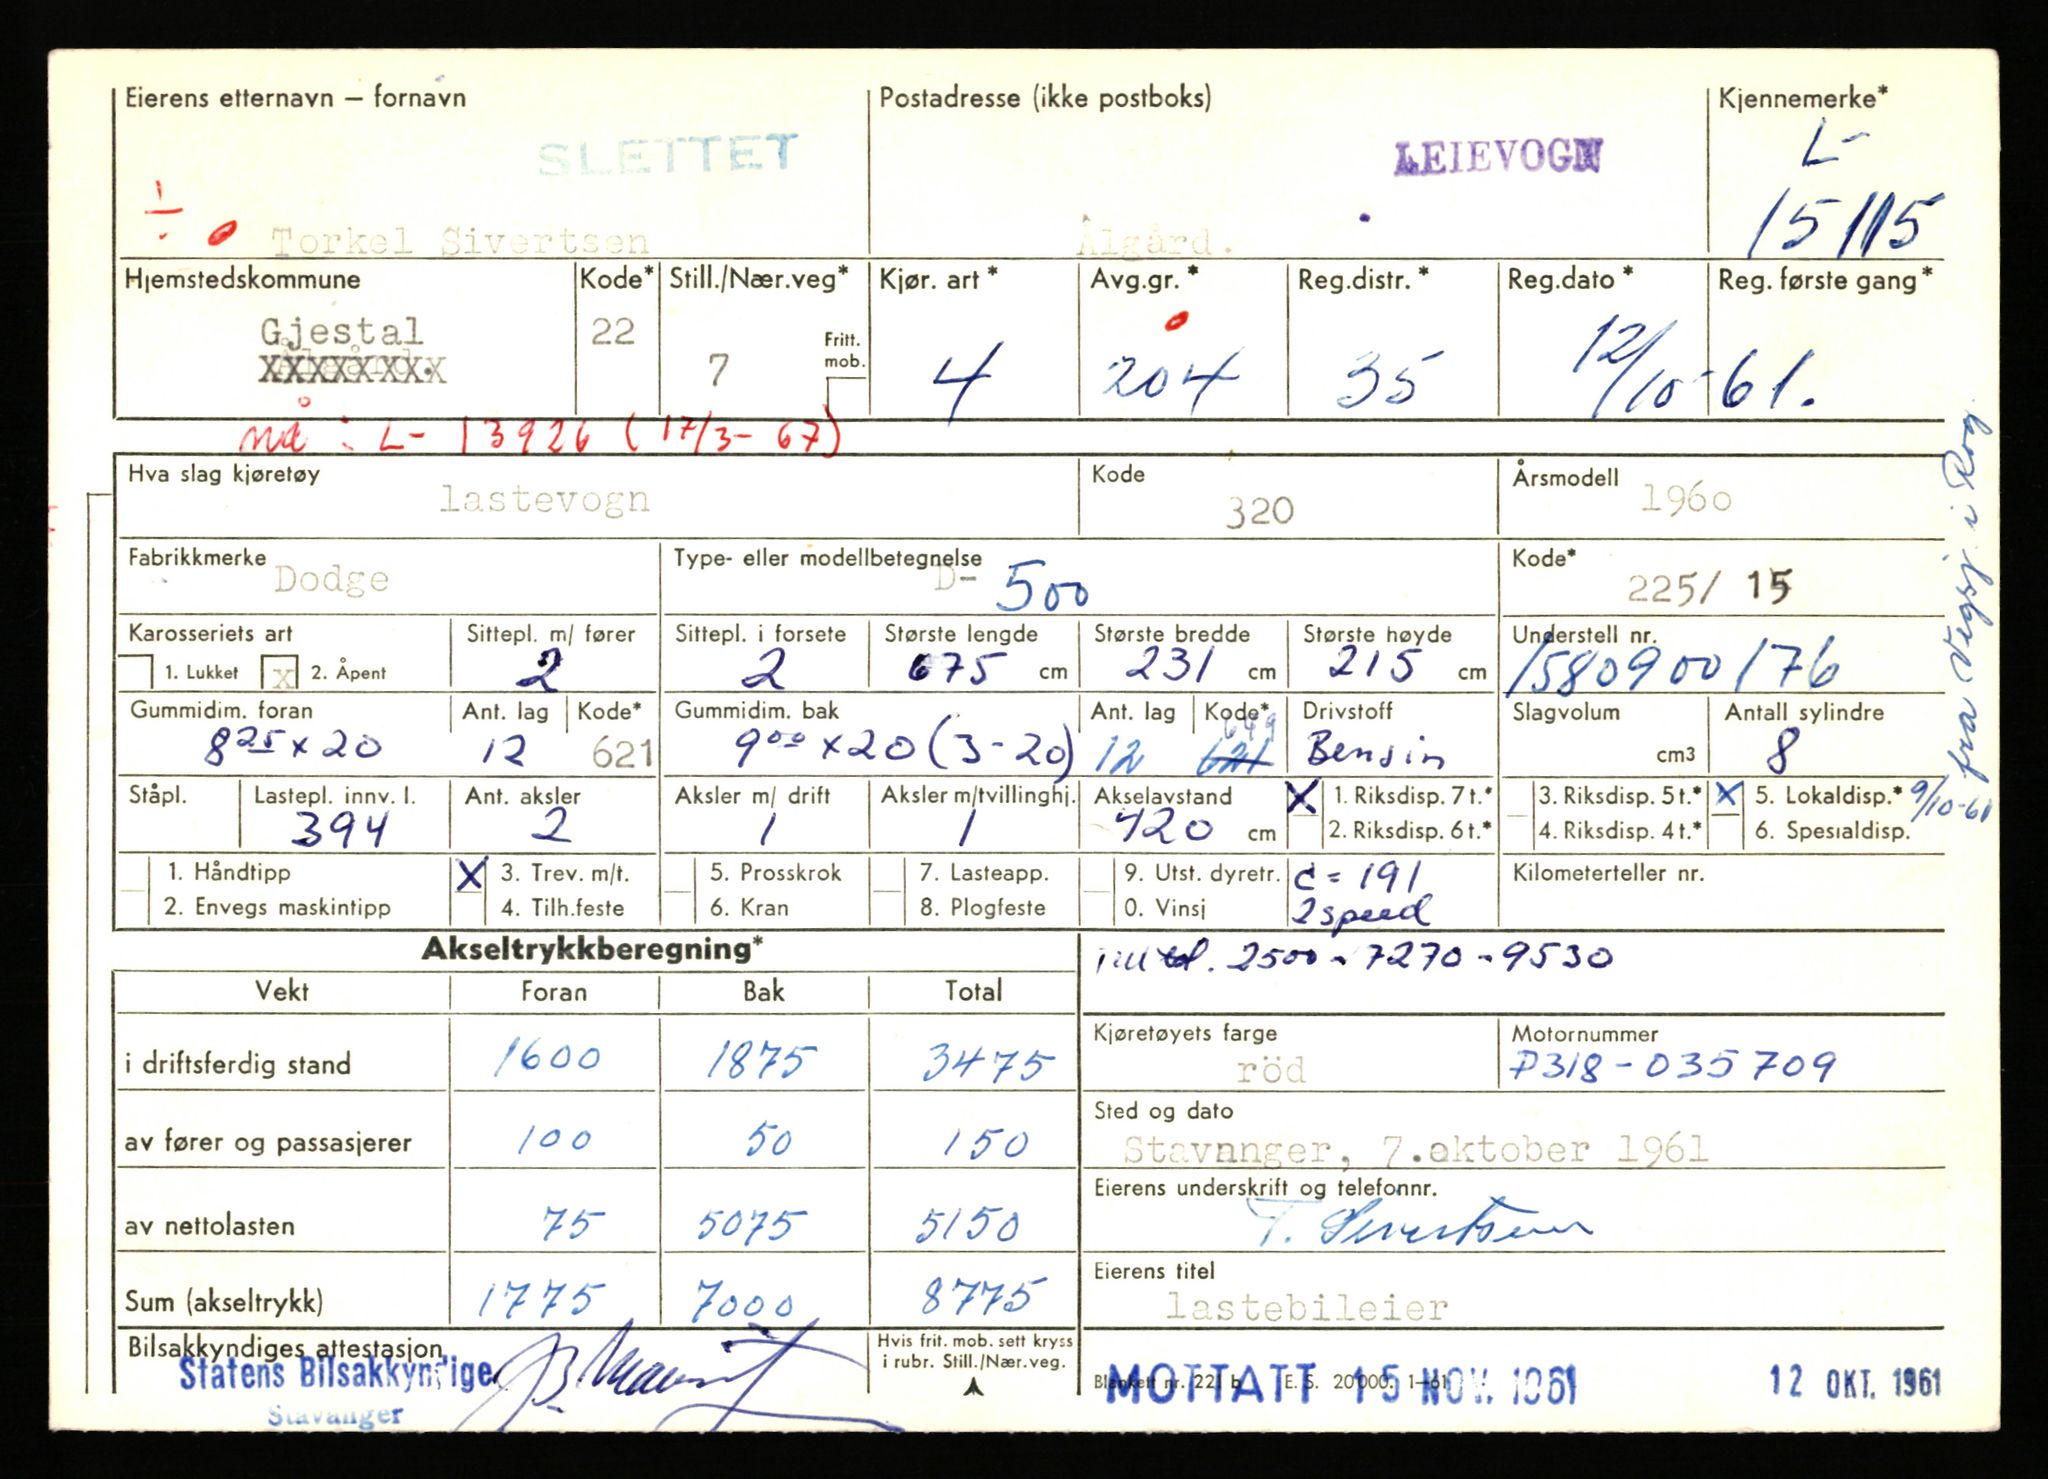 Eierens etternavn – fornavn
Postadresse (ikke postboks)
Kjennemerke*
SLETTET
LEIEVOGN
L-
15115
Torkel Sivertsen
Ålgård.
Hjemstedskommune
Kode*
Still./Nær.veg*
Kjør. art*
Avg.gr.*
Reg.distr.*
Reg.dato*
Reg. første gang*
Gjestal
22
7
Fritt. mob.
4
204
35
12/10-61.
nå: L- 13926 (17/3-67)
Hva slag kjøretøy
lastevogn
Kode
320
Årsmodell
1960
Fabrikkmerke
Dodge
Type- eller modellbetegnelse
D-500
Kode*
225/ 15
Karosseriets art
1. Lukket
x 2. Åpent
Sittepl. m/ fører
2
Sittepl. i forsete
2
Største lengde
675 cm
Største bredde
231 cm
Største høyde
215 cm
Understell nr.
1580900176
Gummidim. foran
8 25 x 20
Ant. lag
12
Kode*
621
Gummidim. bak
9 00 x 20 (3-20)
Ant. lag
12
Kode*
649
621
Drivstoff
Bensin
Slagvolum
cm3
Antall sylindre
8
Ståpl.
Lastepl. innv. l.
394
Ant. aksler
2
Aksler m/ drift
1
Aksler m/tvillinghj.
1
Akselavstand
420 cm
X 1. Riksdisp. 7 t.*
2. Riksdisp. 6 t.*
3. Riksdisp. 5 t.*
4. Riksdisp. 4 t.*
X 5. Lokaldisp.*
6. Spesialdisp.
9/10-61
fra Vegsj. i Rog.
1. Håndtipp
2. Envegs maskintipp
X 3. Trev. m/t.
4. Tilh.feste
5. Prosskrok
6. Kran
7. Lasteapp.
8. Plogfeste
9. Utst. dyretr.
0. Vinsj
C = 191
2 speed
Kilometerteller nr.
Akseltrykkberegning*
2500 - 7270 - 9530
Vekt
Foran
Bak
Total
i driftsferdig stand
1600
1875
3475
Kjøretøyets farge
röd
Motornummer
P318-035709
av fører og passasjerer
100
50
150
Sted og dato
Stavanger, 7.oktober 1961
av nettolasten
75
5075
5150
Eierens underskrift og telefonnr.
T. Sivertsen
Sum (akseltrykk)
1775
7000
8775
Eierens titel
lastebileier
Bilsakkyndiges attestasjon
Statens Bilsakkyndige
Stavanger
Hvis frit. mob. sett kryss
i rubr. Still./Nær.veg.
Blankett nr. 221 b E. S. 20 000. 1–61
MOTTATT 15 NOV. 1961
12 OKT. 1961